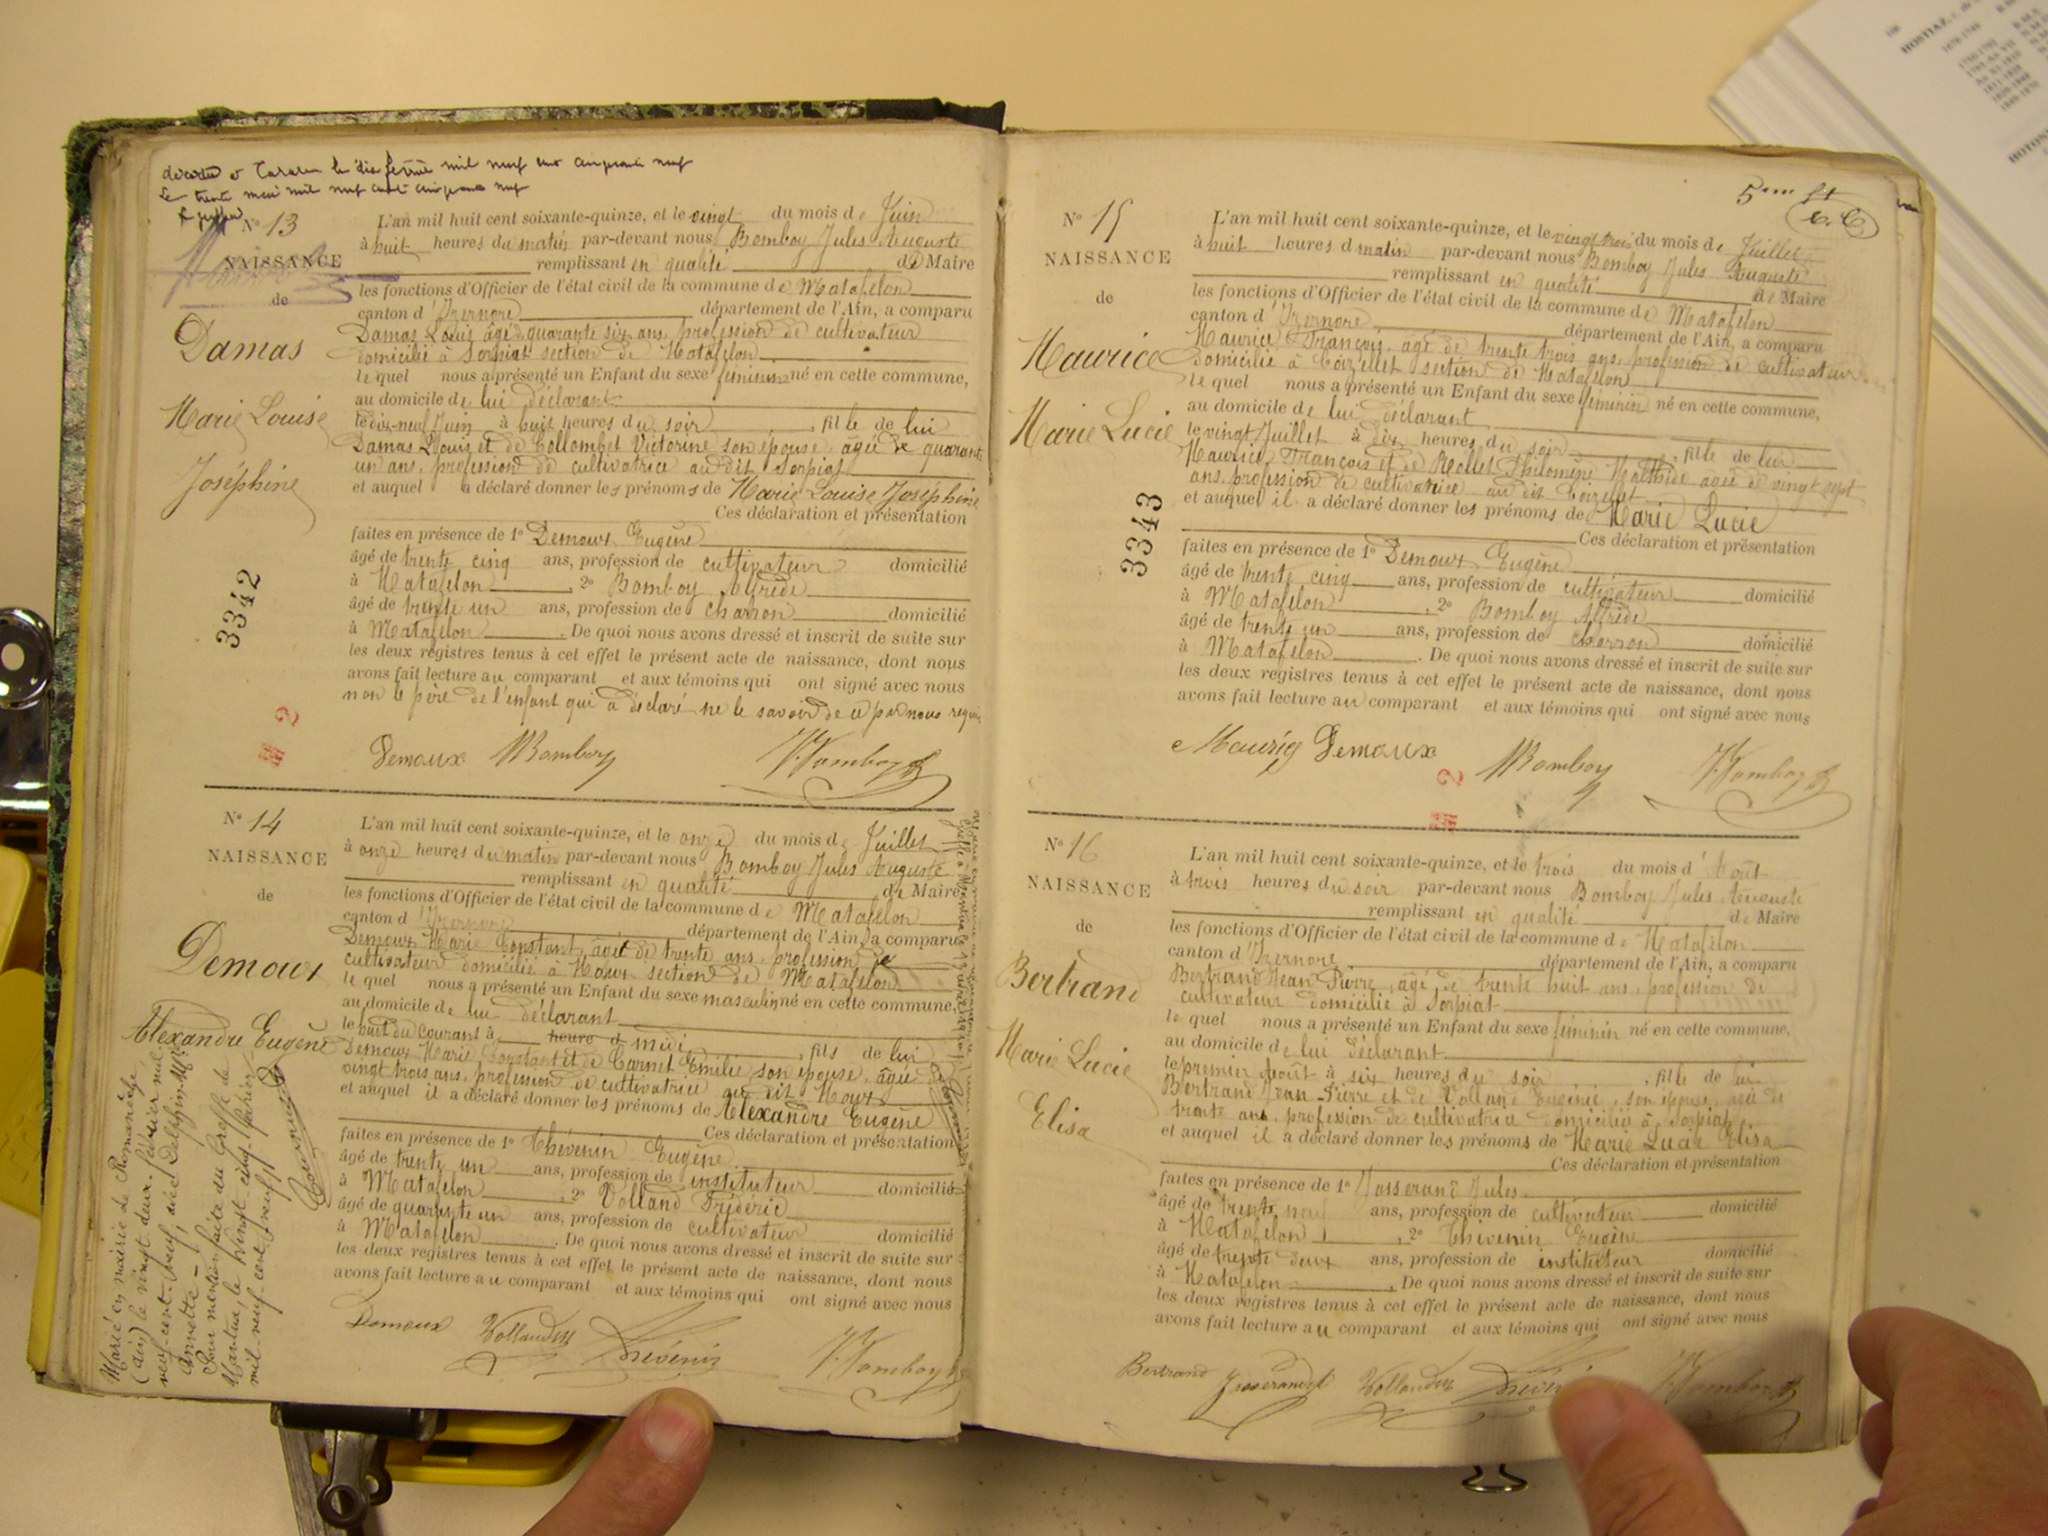 le trente mai mil neuf cent cinquante neuf
N° 13
NAISSANCE
de
Damas
Marie Louise
Joséphine
3342
L'an mil huit cent soixante-quinze, et le vingt du mois de Juin
à huit heures du matin par-devant nous Bomboy Jules Auguste
remplissant en qualité de Maire
les fonctions d'Officier de l'état civil de la commune de Matafelon
canton d'Izernore département de l'Ain, a comparu
Damas Louis âgé de quarante six ans, profession de cultivateur
domicilié à Sorpiat section de Matafelon
le quel nous a présenté un Enfant du sexe féminin né en cette commune,
au domicile de lui déclarant
le dix-neuf Juin à huit heures du soir, fille de lui
Damas Louis et de Collombet Victorine son épouse, âgée de quarante
un ans, profession de cultivatrice au dit Sorpiat
et auquel a déclaré donner les prénoms de Marie Louise Joséphine
Ces déclaration et présentation
faites en présence de 1° Demoux Eugène
âgé de trente cinq ans, profession de cultivateur domicilié
à Matafelon, 2° Bomboy Alfrède
âgé de trente un ans, profession de charron domicilié
à Matafelon. De quoi nous avons dressé et inscrit de suite sur
les deux registres tenus à cet effet le présent acte de naissance, dont nous
avons fait lecture au comparant et aux témoins qui ont signé avec nous
non le père de l'enfant qui a déclaré ne le savoir de ce par nous requis
Demoux Bomboy J. Bomboy
N° 14
NAISSANCE
de
Demoux
Alexandre Eugène
Marié en mairie de Romanèche
(Ain) le vingt-deux février mil
neuf-cent-neuf, avec Delphin M
Annette –
Pour mention faite du Greffe de
Nantua, le vingt-cinq Février
mil-neuf-cent-neuf
L'an mil huit cent soixante-quinze, et le onze du mois de Juillet
à onze heures du matin par-devant nous Bomboy Jules Auguste
remplissant en qualité de Maire
les fonctions d'Officier de l'état civil de la commune de Matafelon
canton d'Izernore département de l'Ain, a comparu
Demoux Marie Constant, âgé de trente ans, profession de
cultivateur domicilié à Houx section de Matafelon
le quel nous a présenté un Enfant du sexe masculin né en cette commune,
au domicile de lui déclarant
le huit du courant à heure d midi, fils de lui
Demoux Marie Constant et de Carnet Emilie son épouse, âgée de
vingt trois ans, profession de cultivatrice au dit Houx
et auquel il a déclaré donner les prénoms de Alexandre Eugène
Ces déclaration et présentation
faites en présence de 1° Thévenin Eugène
âgé de trente un ans, profession de instituteur domicilié
à Matafelon, 2° Volland Frédéric
âgé de quarante un ans, profession de cultivateur domicilié
à Matafelon. De quoi nous avons dressé et inscrit de suite sur
les deux registres tenus à cet effet le présent acte de naissance, dont nous
avons fait lecture au comparant et aux témoins qui ont signé avec nous
Demoux Volland Thévenin J. Bomboy
5em
N° 15
NAISSANCE
de
Maurice
Marie Lucie
3343
L'an mil huit cent soixante-quinze, et le vingt trois du mois de Juillet
à huit heures d matin par-devant nous Bomboy Jules Auguste
remplissant en qualité de Maire
les fonctions d'Officier de l'état civil de la commune de Matafelon
canton d'Izernore département de l'Ain, a comparu
Maurice François, âgé de trente trois ans, profession de cultivateur
domicilié à Coizelet section de Matafelon
le quel nous a présenté un Enfant du sexe féminin né en cette commune,
au domicile de lui déclarant
le vingt Juillet à dix heures du soir, fille de lui
Maurice François et de Mollet Philomène Mathilde âgée de vingt sept
ans, profession de cultivatrice au dit Coizelet
et auquel il a déclaré donner les prénoms de Marie Lucie
Ces déclaration et présentation
faites en présence de 1° Demoux Eugène
âgé de trente cinq ans, profession de cultivateur domicilié
à Matafelon, 2° Bomboy Alfrède
âgé de trente un ans, profession de charron domicilié
à Matafelon. De quoi nous avons dressé et inscrit de suite sur
les deux registres tenus à cet effet le présent acte de naissance, dont nous
avons fait lecture au comparant et aux témoins qui ont signé avec nous
Demoux Bomboy J. Bomboy
N° 16
NAISSANCE
de
Bertrand
Marie Lucie
Elisa
L'an mil huit cent soixante-quinze, et le trois du mois d'Août
à trois heures du soir par-devant nous Bomboy Jules Auguste
remplissant en qualité de Maire
les fonctions d'Officier de l'état civil de la commune de Matafelon
canton d'Izernore département de l'Ain, a comparu
Bertrand Jean Pierre, âgé de trente huit ans, profession de
cultivateur domicilié à Sorpiat
le quel nous a présenté un Enfant du sexe féminin né en cette commune,
au domicile de lui déclarant
le premier Août à six heures du soir, fille de lui
Bertrand Jean-Pierre et de Volland Eugénie, son épouse, âgée de
trente ans, profession de cultivatrice domiciliée à Sorpiat
et auquel il a déclaré donner les prénoms de Marie Lucie Elisa
Ces déclaration et présentation
faites en présence de 1° Josserand Jules
âgé de trente neuf ans, profession de cultivateur domicilié
à Matafelon, 2° Thévenin Eugène
âgé de trente deux ans, profession de instituteur domicilié
à Matafelon. De quoi nous avons dressé et inscrit de suite sur
les deux registres tenus à cet effet le présent acte de naissance, dont nous
avons fait lecture au comparant et aux témoins qui ont signé avec nous
Bertrand Josserand Volland Thévenin J. Bomboy
HOSTIAZ